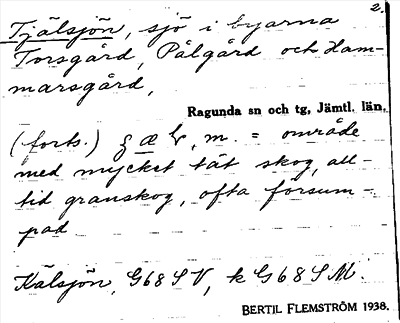 2.
Tjälsjön, sjö i byarna
Torsgård, Pålgård och Ham-
marsgård,
Ragunda sn och tg, Jämtl. län.
(forts.) m. = område
med mycket tät skog, all-
tid granskog, ofta försum-
pad
Kälsjön, G68SV, k G68SM.
BERTIL FLEMSTRÖM 1938.